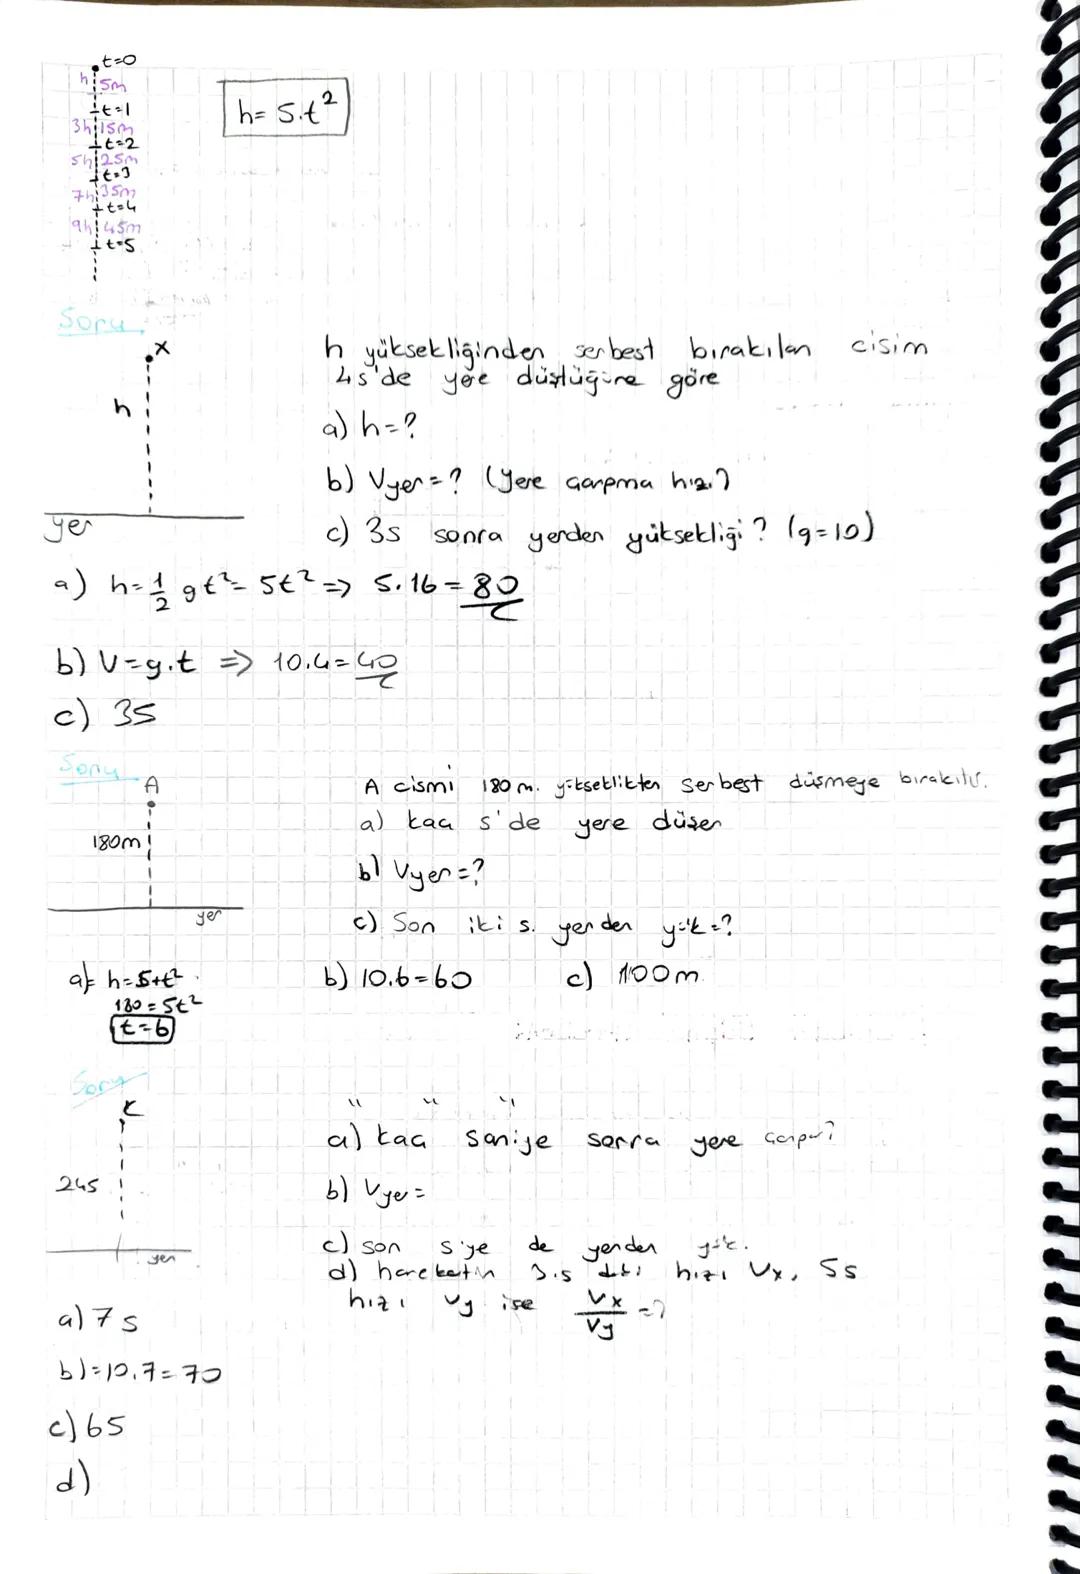 t=0
h 5m
t=1
h=5.t²
3h 15m
t=2
5h 25m
t=3
7h 35m
t=4
9h 45m
t=5
Soru
x
h yüksekliğinden serbest bırakılan cisim
4s'de yere düştüğüne göre
h
a) h=?
b) Vyer=? (Yere çarpma hızı?)
yer
c) 3s sonra yerden yüksekliği? (g=10)
a) h=1/2 gt²=5t² => 5.16=80
b) V=g.t => 10.4=40
c) 35
Soru
A
A cismi 180 m. yükseklikten serbest düşmeye bırakılır.
a) kaç s'de yere düşer
180m
b) Vyer=?
yer
c) Son iki s. yerden yük=?
a) h=5+t²
b) 10.6=60
c) 100m
180=5t²
t=6
Soru
K
" " "
a) kaç saniye sonra yere çarpar?
245
b) Vyer=
yer
c) son s'ye de yerden yük.
d) hareketin 3.s hızı Vx, 5s
hızı Vy ise Vx/Vy =?
a) 7s
b)=10.7=70
c) 65
d)